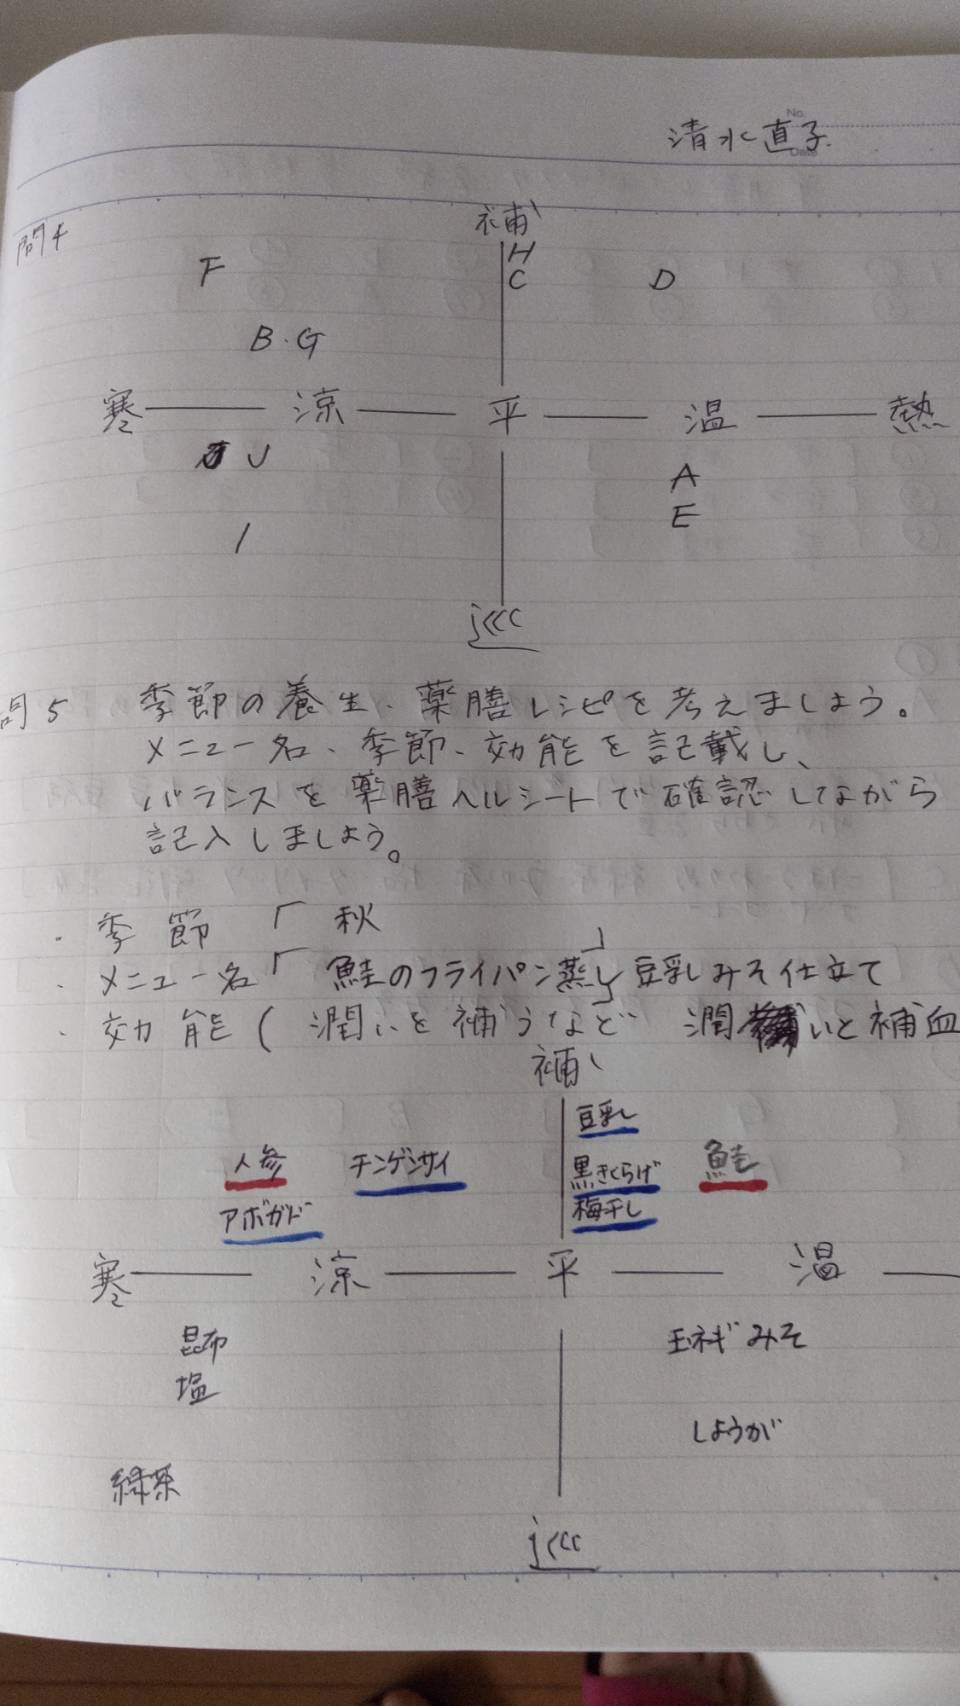 No.
Date
清水直子
問4
補
H
F
C
D
B・G
寒 涼 平 温 熱
J
A
E
I
瀉
問5 季節の養生、薬膳レシピを考えましょう。
メニュー名、季節、効能を記載し、
バランスを薬膳ヘルシートで確認しながら
記入しましょう。
・季節「秋」
・メニュー名「鮭のフライパン蒸し 豆乳みそ仕立て」
・効能( 潤いを補うなど 潤いと補血
補
豆乳
人参 チンゲンサイ 黒きくらげ 鮭
アボガド 梅干し
寒 涼 平 温
昆布 玉ネギ みそ
塩
しょうが
緑茶